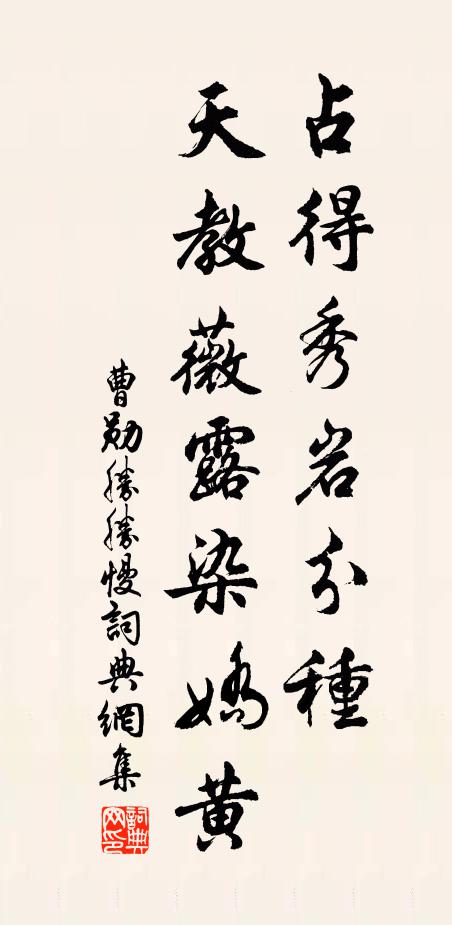 占得秀岩分種
天教薇露染嬌黄
曹勛勝勝慢詞典網集
詞典网印